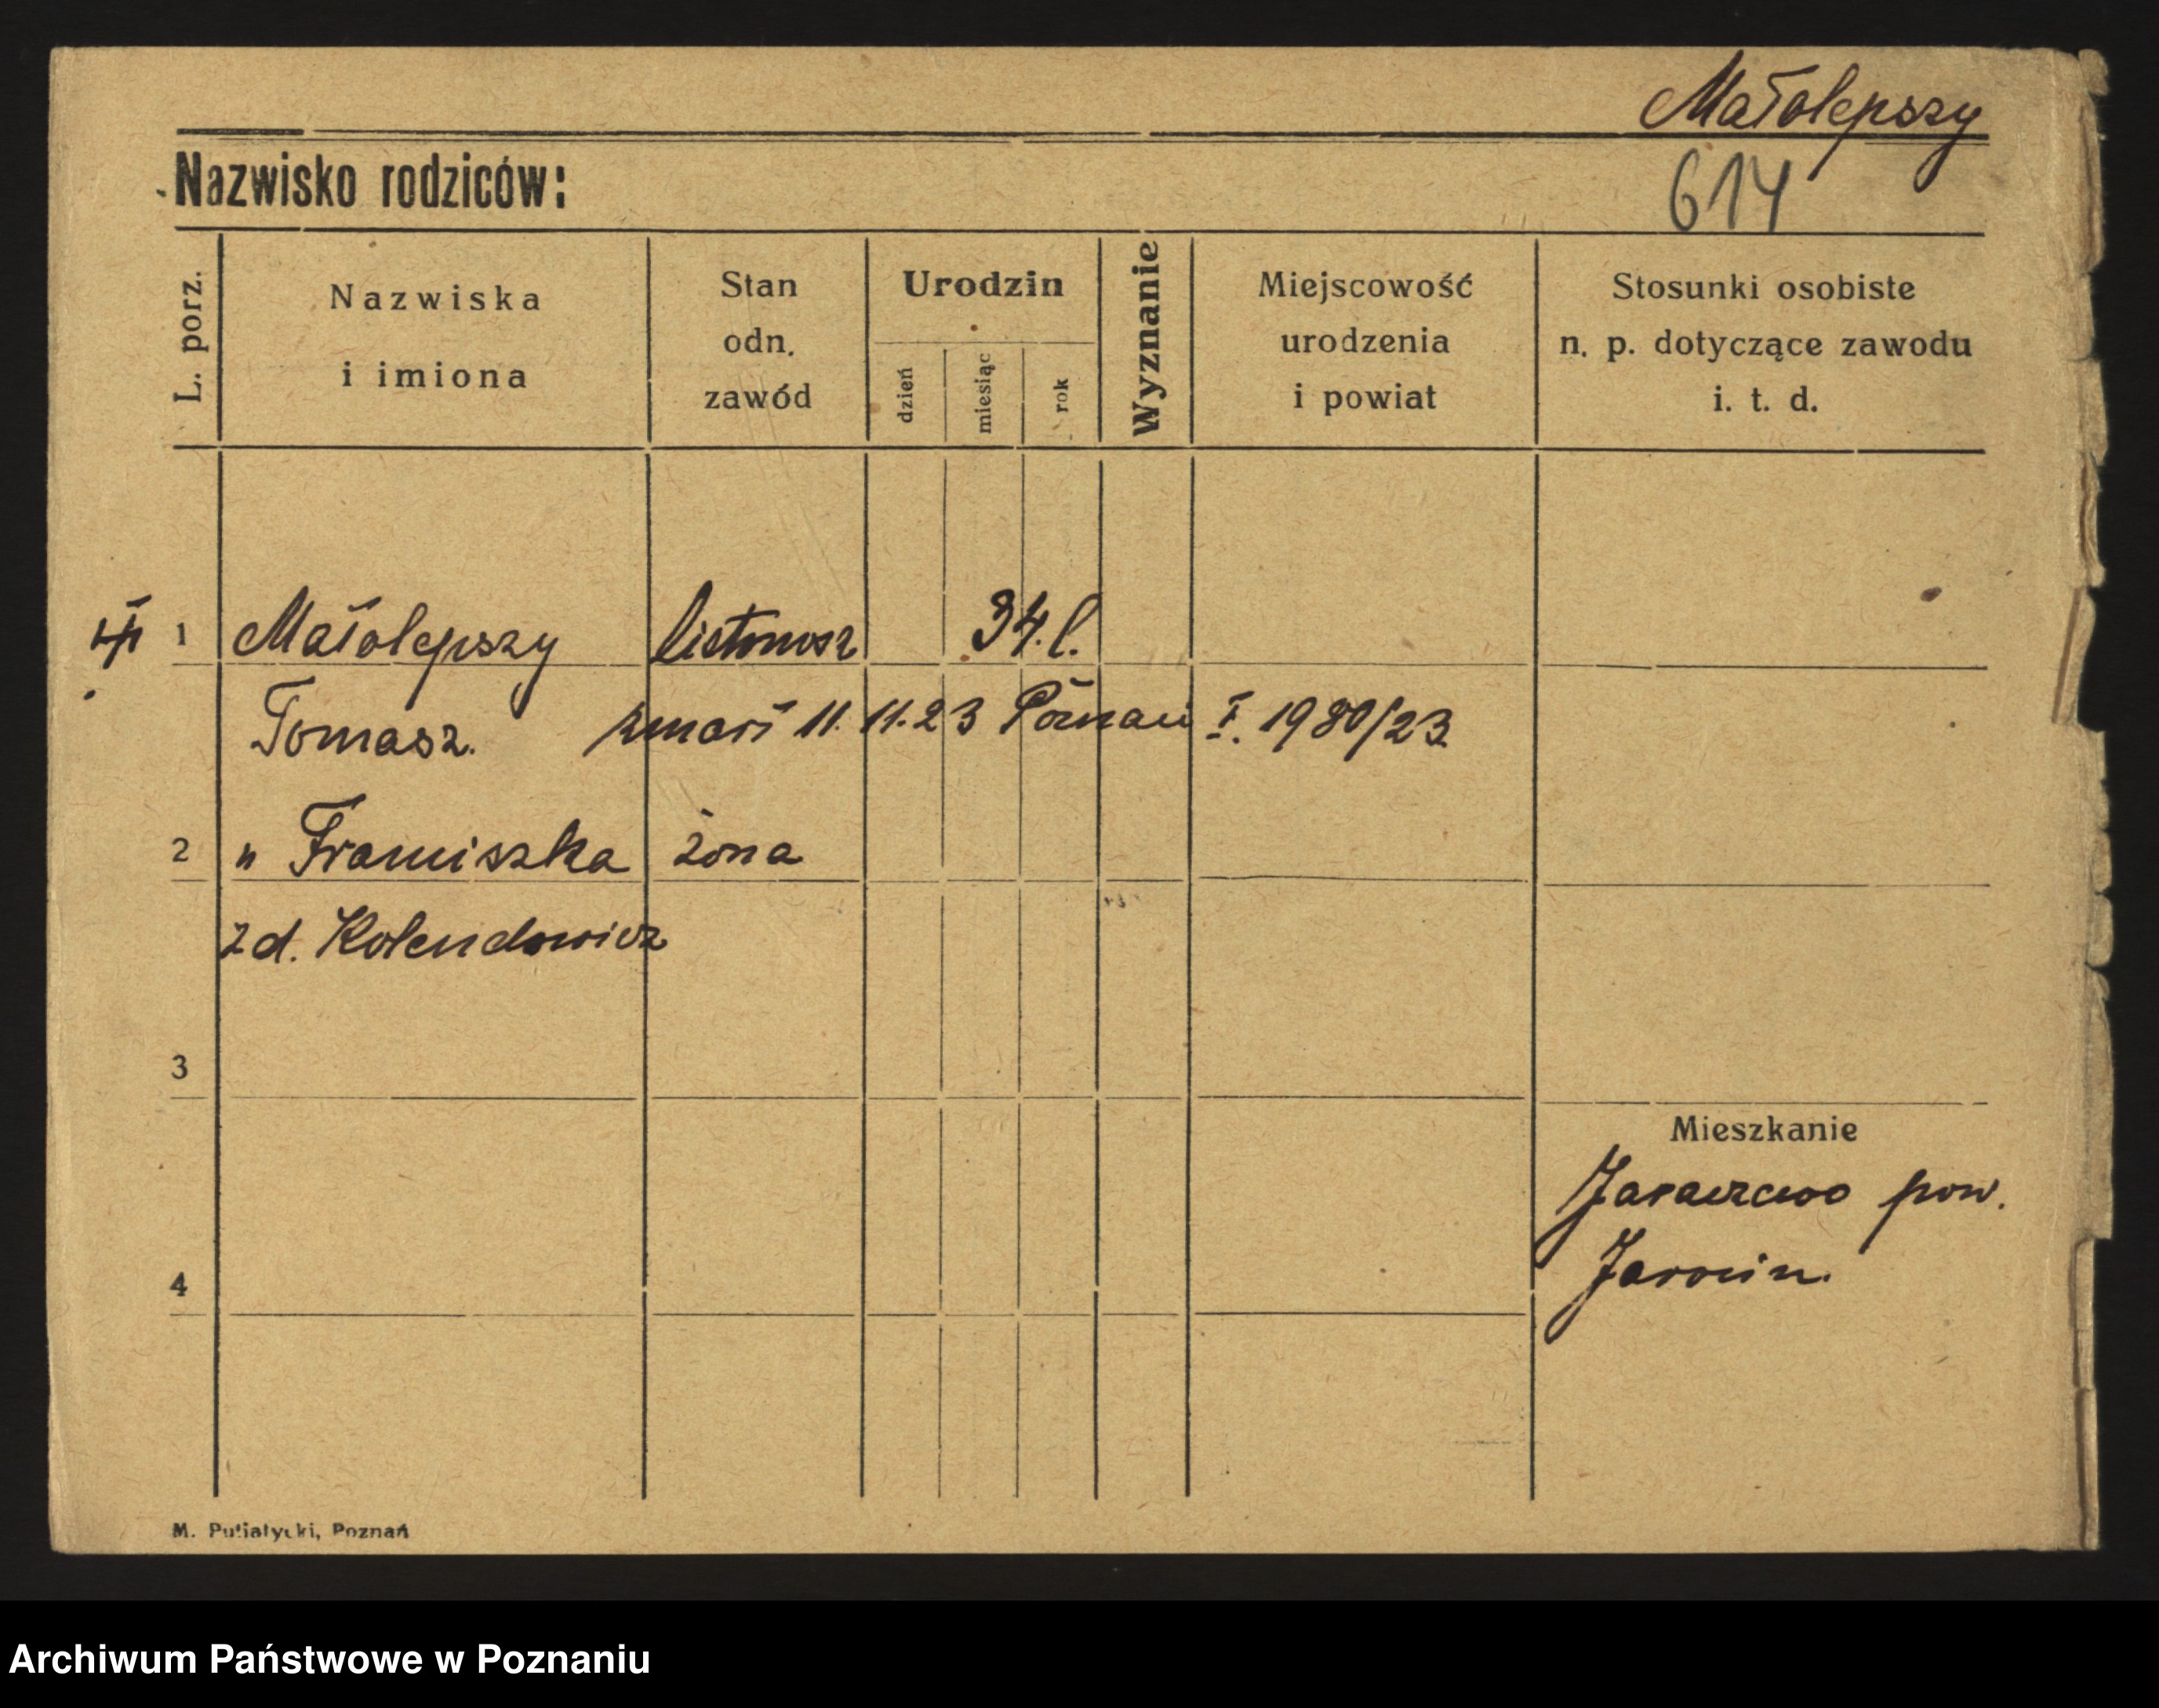 Małolepszy
Nazwisko rodziców:
614
L. porz.
Nazwiska
i imiona
Stan
odn.
zawód
Urodzin
dzień
miesiąc
rok
Wyznanie
Miejscowość
urodzenia
i powiat
Stosunki osobiste
n. p. dotyczące zawodu
i. t. d.
1 Małolepszy listonosz 34. l.
Tomasz. zmarł 11. 11. 23 Poznań I. 1980/23
2 " Franciszka żona
z d. Kolendowicz
3
Mieszkanie
Jaraczewo pow.
Jarocin.
4
M. Putiatycki, Poznań
Archiwum Państwowe w Poznaniu